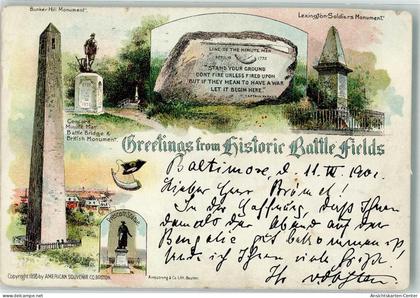 Bunker Hill Monument.
Lexington Soldiers Monument.
LINE OF THE MINUTE MEN
APRIL 19 1775
"STAND YOUR GROUND
DONT FIRE UNLESS FIRED UPON
BUT IF THEY MEAN TO HAVE A WAR
LET IT BEGIN HERE"
Concord
Minute Man
Battle Bridge &
British Monument.
Greetings from Historic Battle Fields
Baltimore, d. 11. IV 1901.
Lieber Herr
In der Hoffnung, daß Ihnen
damals der Abend auf der
bekommen ist
ich Ihnen viele Grüße!
Ihr
Copyright 1898 by AMERICAN SOUVENIR CO. BOSTON.
Armstrong & Co. Lith. Boston
www.Ansichtskarten-Center.de